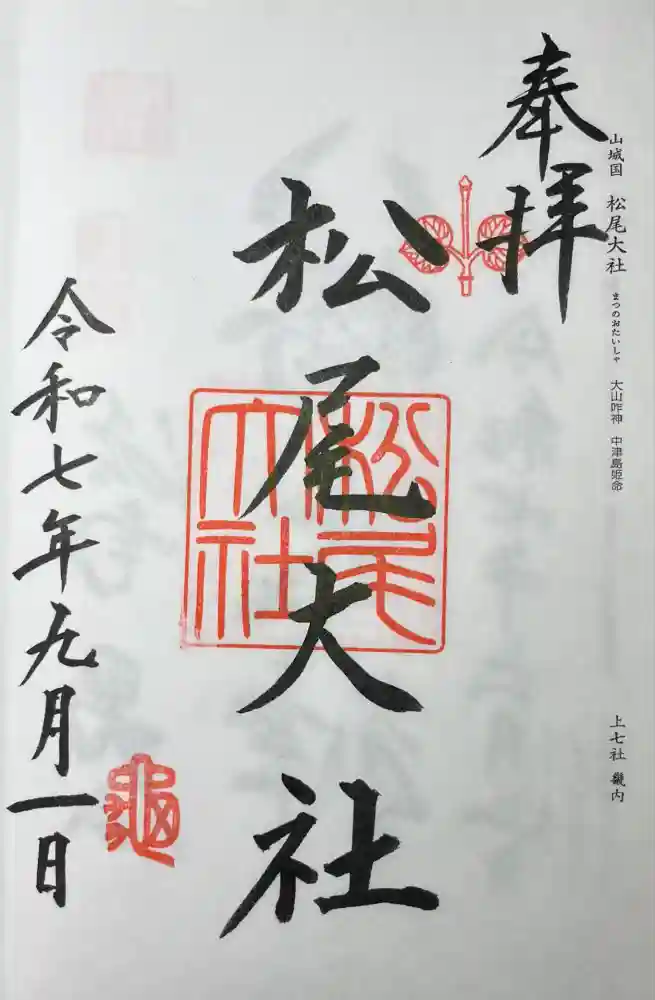 奉拝
山城国 松尾大社 まつのおたいしゃ 大山咋神 中津島姫命
上七社 畿内
松尾大社
松尾大社
令和七年九月一日
龜